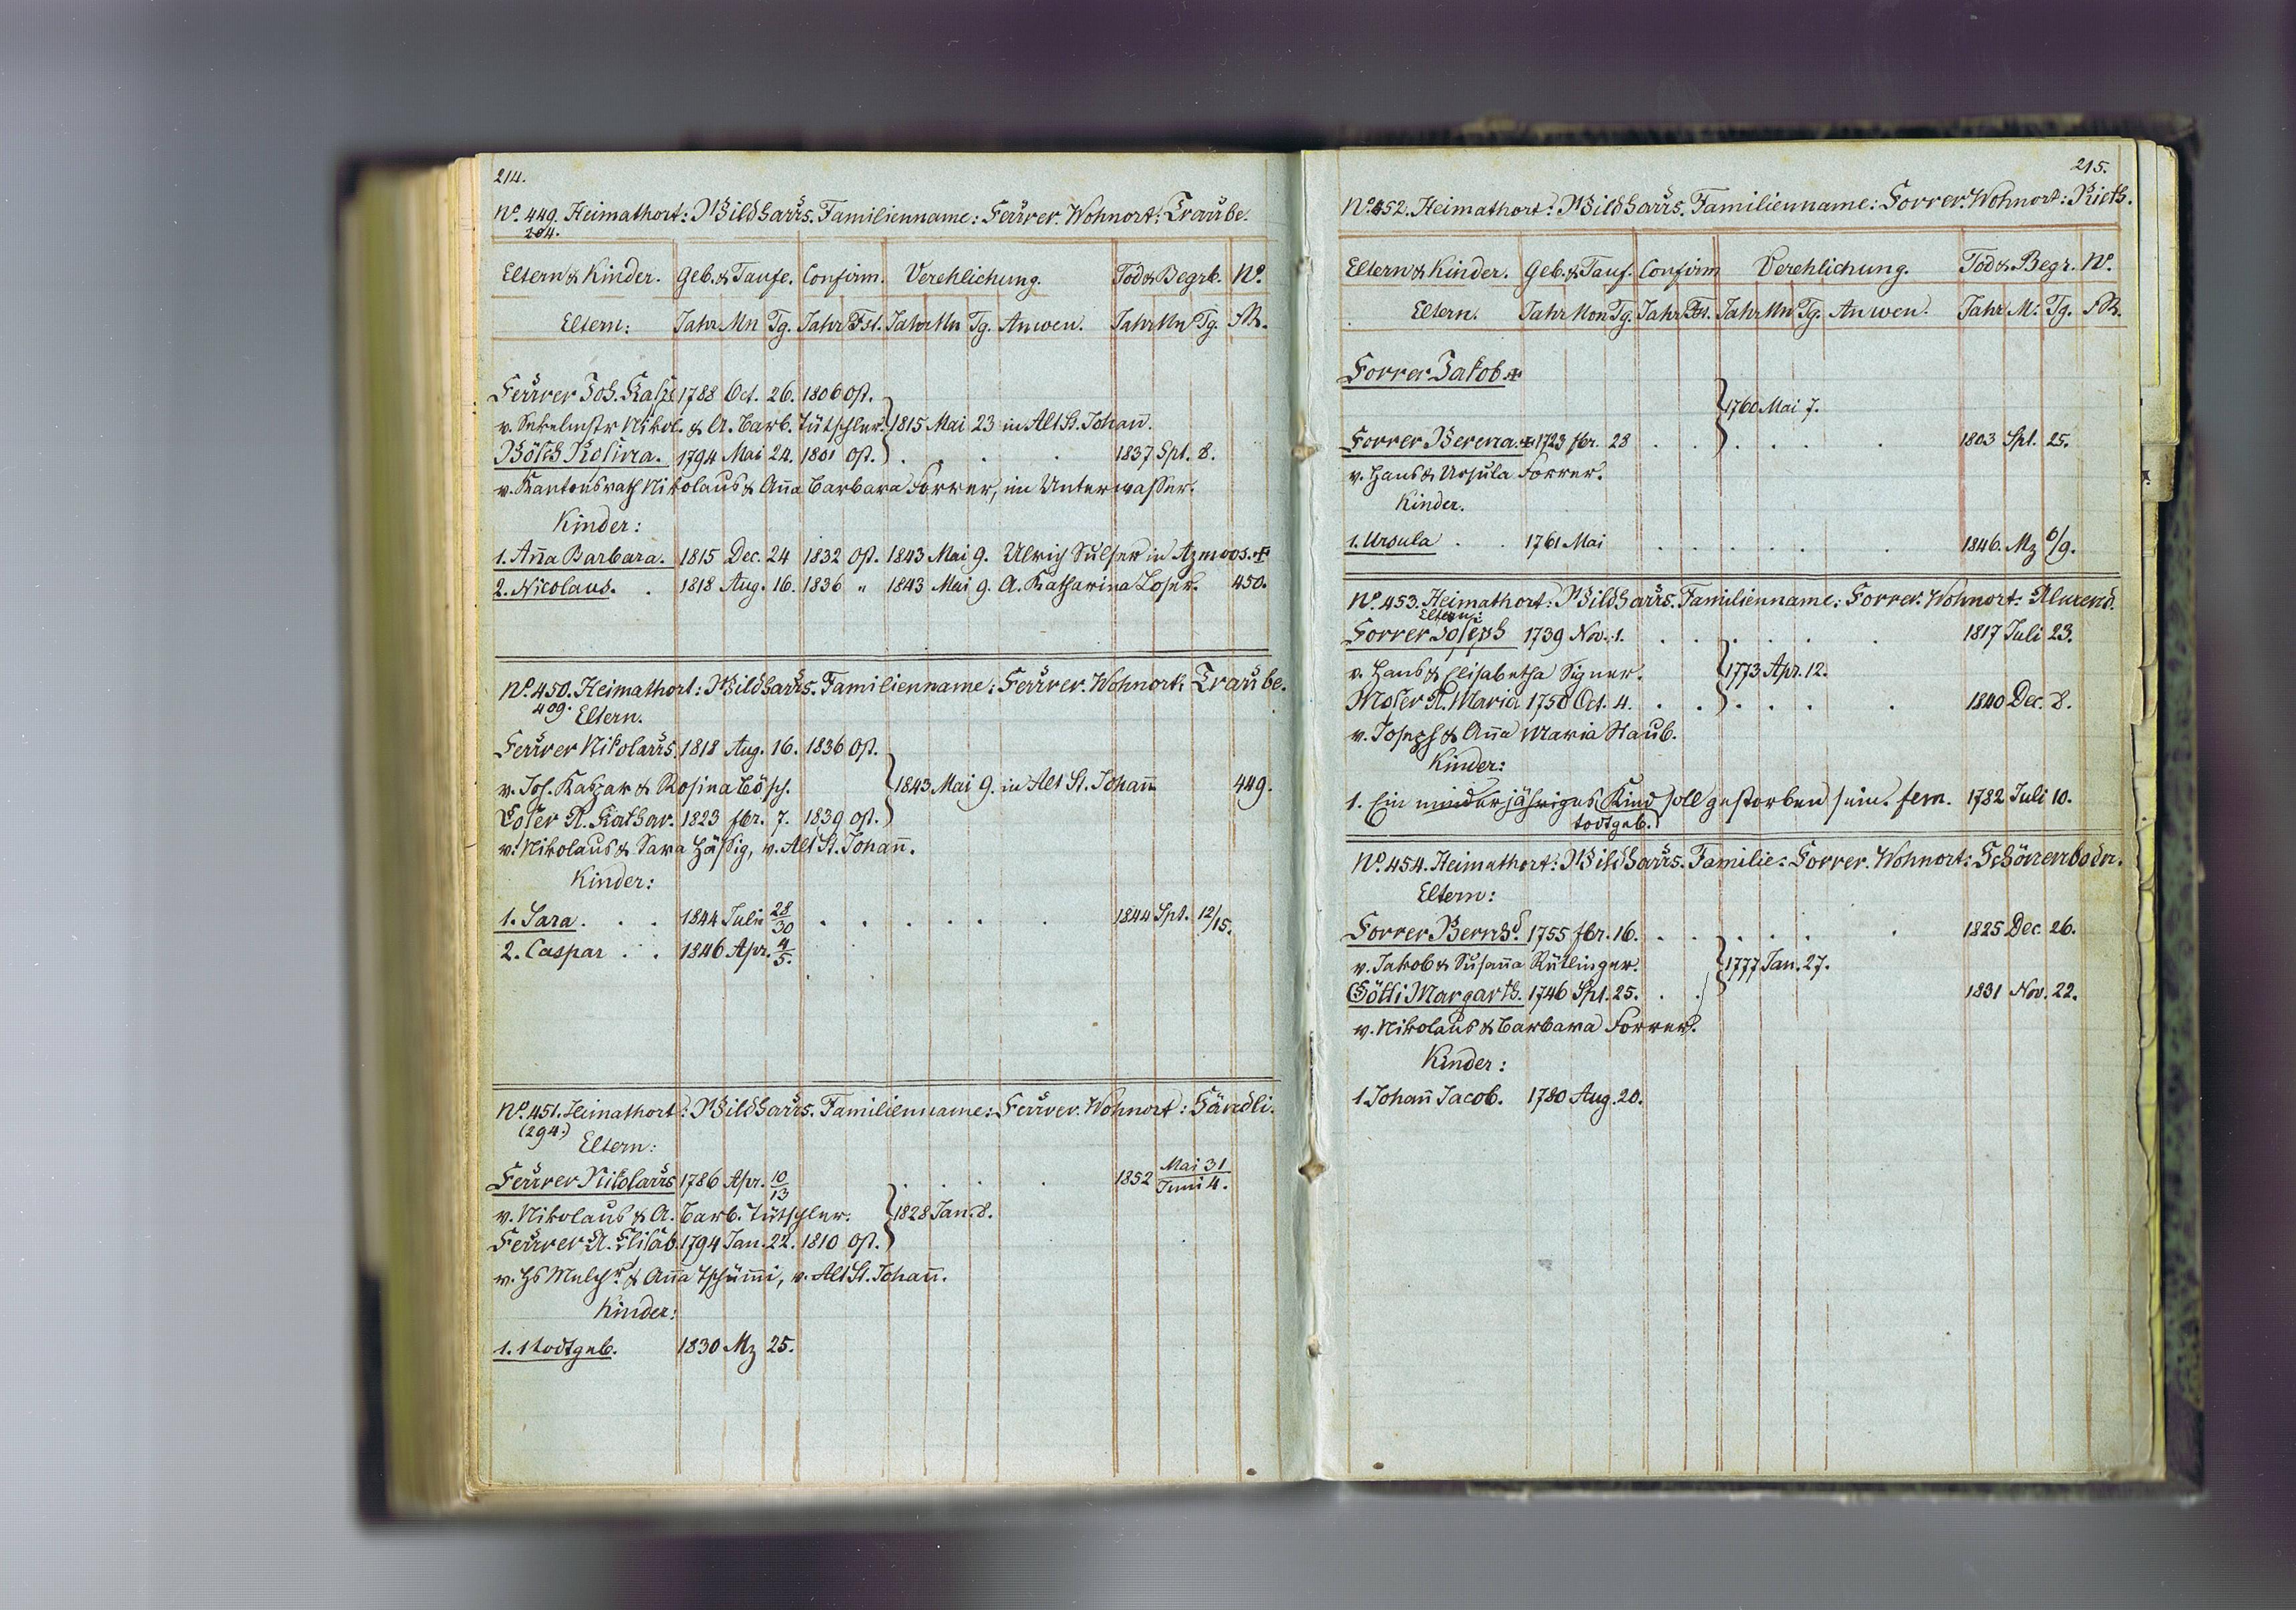 214.
No. 449. Heimathort: Wildhaus. Familienname: Feurer. Wohnort: Traube.
204.
Eltern & Kinder. Geb. & Taufe. Confirm. Verehlichung. Tod & Begrb. No.
Eltern: Jahr Mn Tg. Jahr Fst. Jahr Mn Tg. Anwen. Jahr Mn Tg.
Feurer Joh. Kasp. 1788 Oct. 26. 1806 Ost.
v. Sekelmstr Nikol. & A. Barb. Lütschler. 1815 Mai 23 in Alt St. Johan̄.
Bösch Rosina. 1794 Mai 24. 1801 Ost. . . . . 1837 Spt. 8.
v. Kantonsrath Nikolaus & An̄a Barbara Forrer, im Unterwasser.
Kinder:
1. An̄a Barbara. 1815 Dec. 24 1832 Ost. 1843 Mai 9. Ulrich Sulser in Azmoos. +
2. Nicolaus. . 1818 Aug. 16. 1836 " 1843 Mai 9. A. Katharina Loser. 450.
No. 450. Heimathort: Wildhaus. Familienname: Feurer. Wohnort: Traube.
409. Eltern.
Feurer Nikolaus. 1818 Aug. 16. 1836 Ost.
v. Joh. Kaspar & Rosina Bösch. 1843 Mai 9. in Alt St. Johan̄. 449.
Loser A. Kathar. 1823 fbr. 7. 1839 Ost.
v. Nikolaus & Sara Hässig, v. Alt St. Johan̄.
Kinder:
1. Sara. . . 1844 Juli 28/30 . . . . . . 1844 Spt. 12/15.
2. Caspar . . 1846 Apr. 4/5.
No. 451. Heimathort: Wildhaus. Familienname: Feurer. Wohnort: Händli.
(294.) Eltern:
Feurer Nikolaus 1786 Apr. 10/13 . . . . 1852 Mai 31/Juni 4.
v. Nikolaus & A. Barb. Lütschler. 1828 Jan. 8.
Feurer A. Elisab. 1794 Jan. 22. 1810 Ost.
v. Hs Melchr. & An̄a Tschüm̄i, v. Alt St. Johan̄.
Kinder:
1. 1 todtgeb. 1830 Mz 25.
215.
No. 452. Heimathort: Wildhaus. Familienname: Forrer. Wohnort: Rieth.
Eltern & Kinder. Geb. & Tauf. Confirm Verehlichung. Tod & Begr. No.
Eltern. Jahr Mon Tg. Jahr Fst. Jahr Mn Tg. Anwen. Jahr M. Tg.
Forrer Jakob +
1760 Mai 7.
Forrer Verena. + 1723 fbr. 28 . . . . . 1803 Spt. 25.
v. Hans & Ursula Forrer.
Kinder.
1. Ursula . . 1761 Mai . . . . . . . 1846. Mz 6/9.
No. 453. Heimathort: Wildhaus. Familienname: Forrer. Wohnort:
Eltern:
Forrer Joseph 1739 Nov. 1. . . . . . . 1817 Juli 23.
v. Hans & Elisabetha Signer. 1773 Apr. 12.
Moser A. Maria 1750 Oct. 4. . . . . . . 1840 Dec. 8.
v. Joseph & An̄a Maria Staub.
Kinder:
1. Ein minderjähriges Kind soll gestorben sein. fem. 1782 Juli 10.
todtgeb.
No. 454. Heimathort: Wildhaus. Familie: Forrer. Wohnort: Schönenbodn.
Eltern:
Forrer Bernhd. 1755 fbr. 16. . . . . . . 1825 Dec. 26.
v. Jakob & Susan̄a Rütlinger. 1777 Jan. 27.
Götti Margarth. 1746 Spt. 25. . . 1831 Nov. 22.
v. Nikolaus & Barbara Forrer.
Kinder:
1. Johan̄ Jacob. 1780 Aug. 20.